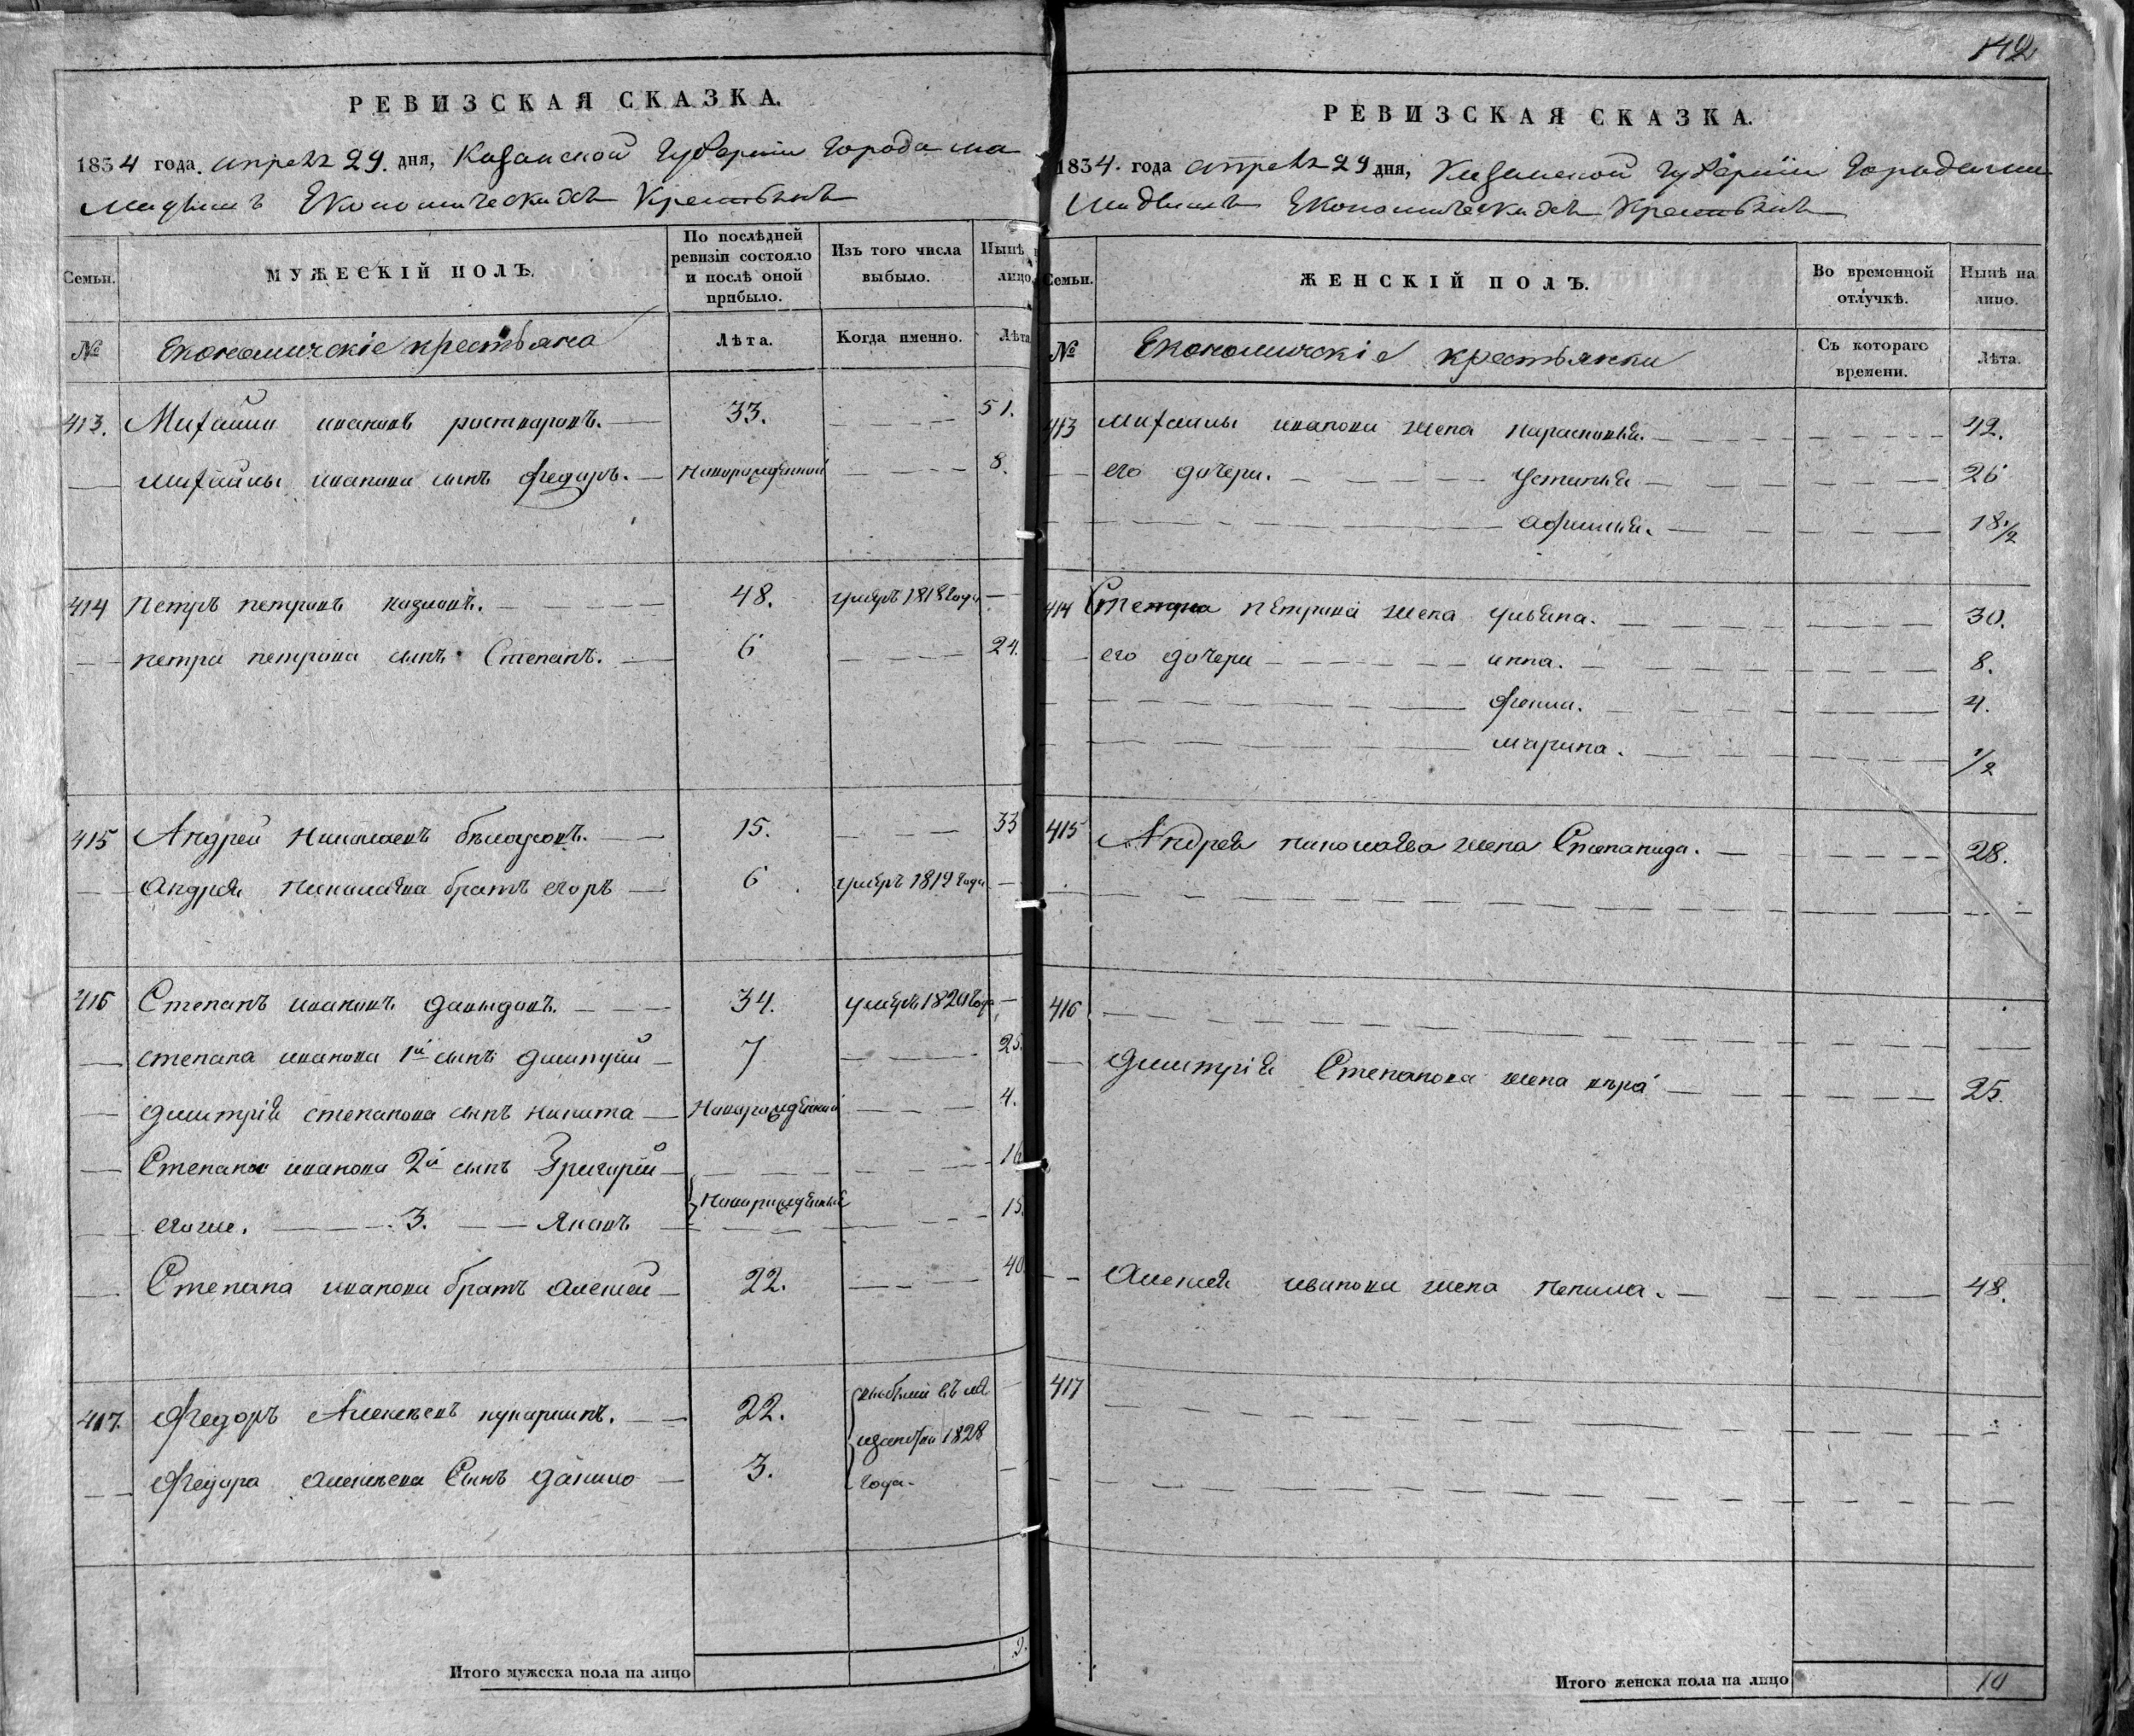 РЕВИЗСКАЯ СКАЗКА.
1834 года. апреля 29. дня, Казанской Губернии Города Ма
мадыша Экономических Крестьянъ
Семьи.
МУЖЕСКІЙ ПОЛЪ.
По послѣдней ревизіи состояло и послѣ оной прибыло.
Изъ того числа выбыло.
Нынѣ на лицо.
№
Економическіе крестьяна
Лѣта.
Когда именно.
Лѣта
413. Михайло ивановъ растваровъ. 33. 51.
михайлы иванова сынъ Федоръ. Новорожденной 8.
414 Петръ петровъ казлокъ. 48. умеръ 1818 года
петра петрова сынъ Степанъ. 6 24.
415 Андрей Николаевъ бѣлаусовъ. 15. 33
Андрея Николаева братъ егоръ 6 умеръ 1812 года
416 Степанъ ивановъ давыдовъ. 34. умеръ 1820 года
степана иванова 1й сынъ дмитрій 7 25.
дмитрія степанова сынъ никита Новорожденной 4.
Степана иванова 2й сынъ Григорій 16
Новорожденные
егоже. 3. Яковъ 15.
Степана иванова братъ алексей 22. 40.
417. Федоръ Алексѣевъ кукаркинъ. 22.
Федора алексѣева Сынъ данило 3.
1828
года
Итого мужеска пола на лицо 9.
142
РЕВИЗСКАЯ СКАЗКА.
1834. года апреля 29 дня, Казанской Губерніи Города ма
мадыша Экономическихъ Крестьянъ
Семьи.
ЖЕНСКІЙ ПОЛЪ.
Во временной отлучкѣ.
Нынѣ на лицо.
№
Економическіе крестьянки
Съ котораго времени.
Лѣта.
413 михайлы иванова жена парасковья. 42.
его дочери. устинья 26
афимья. 18 1/2
414 Степана петрова жена ульяна. 30.
его дочери анна. 8.
фекла. 4.
марина. 1/2
415 Андрея николаева жена Степанида. 28.
416
дмитрія Степанова жена вѣра 25.
Алексея иванова жена 48.
417
Итого женска пола на лицо 10